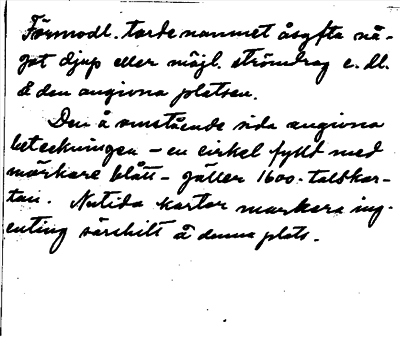 Förmodl. torde namnet åsyfta nå-
got djup eller möjl. strömdrag e. dl.
å den angivna platsen.
Den å omstående sida angivna
beteckningen – en cirkel fylld med
mörkare blått – gäller 1600-talskar-
tan. Nutida kartor markera ing-
enting särskilt å denna plats.